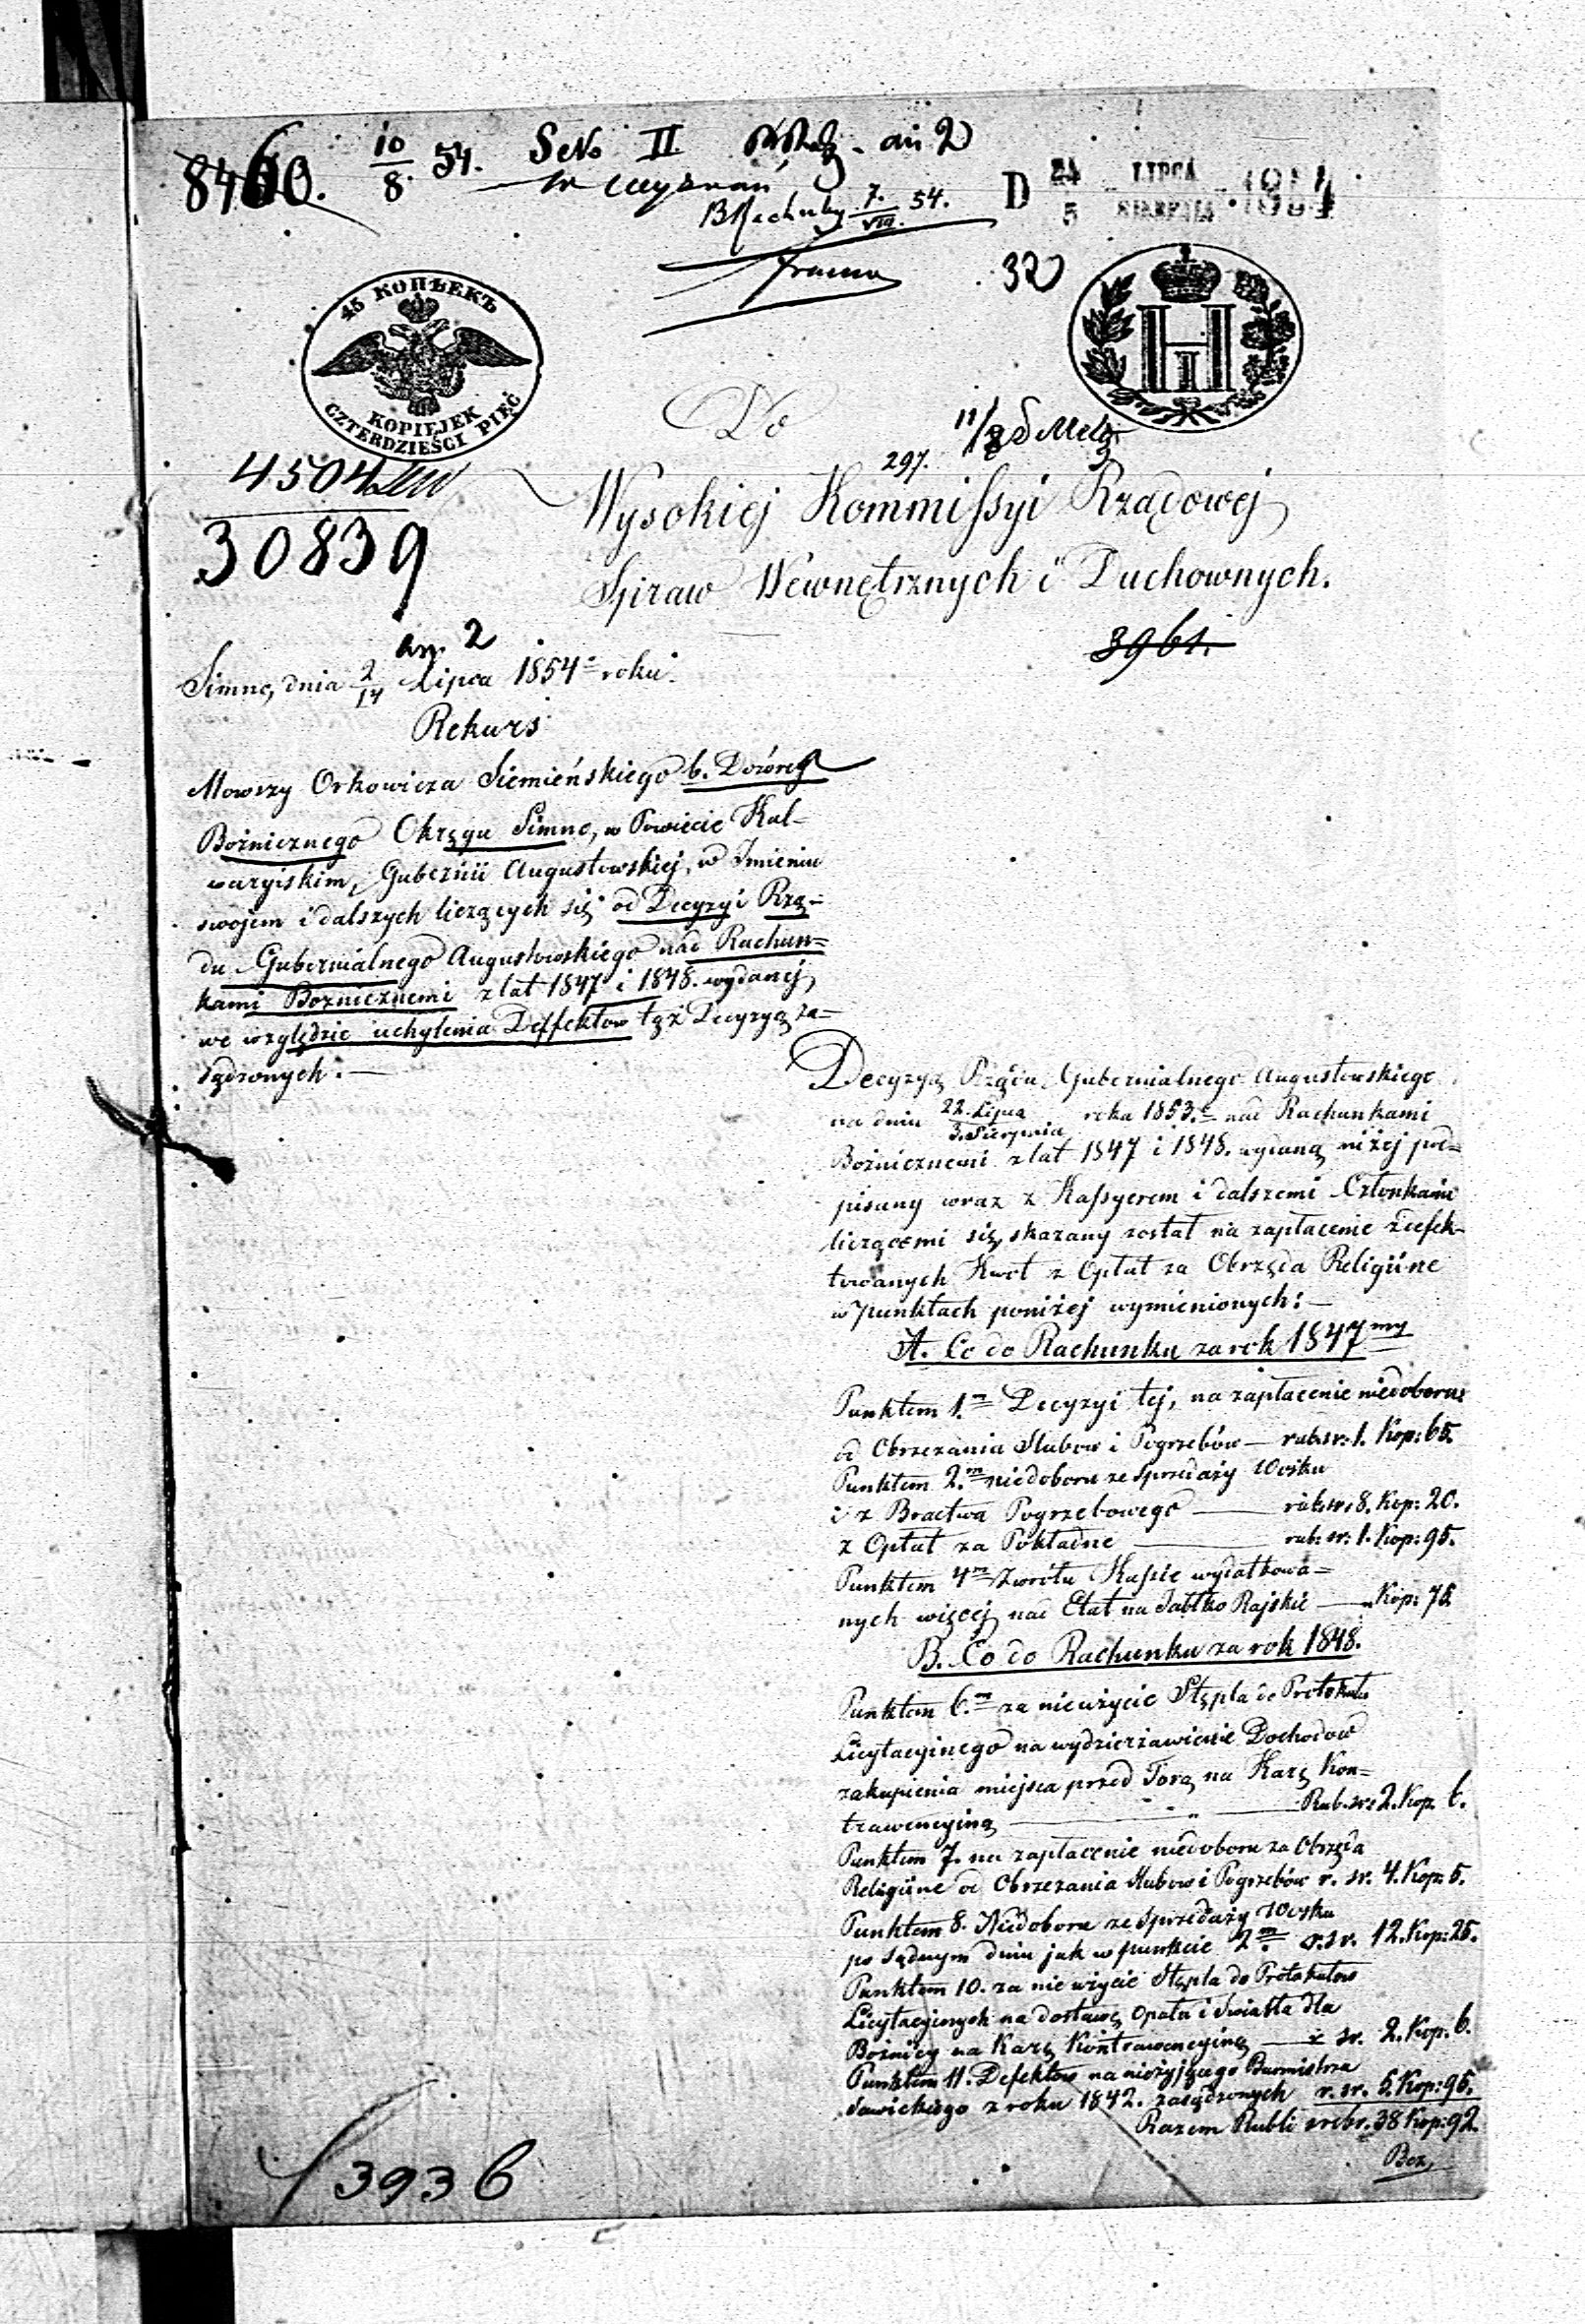 8460.
10/8 54.
II
7/VIII 54.
D 24 LIPCA
5 SIERPNIA 1854
32
45 КОПѢЕКЪ
KOPIEJEK
CZTERDZIEŚCI PIĘĆ
Н I
4504
30839
Do
297.
Wysokiej Kommissyi Rządowej
Spraw Wewnętrznych i Duchownych.
3961.
Simno, dnia 2/14 Lipca 1854 roku.
Rekurs
Mowszy Orkowicza Simieńskiego b. Dozórcy
Bożnicznego Okręgu Simno, w Powiecie Kal=
waryiskim, Gubernii Augustowskiej, w Imieniu
swojem i dalszych liczących się od Decyzyi Rzą=
du Gubernialnego Augustowskiego nad Rachun=
kami Bożnicznemi z lat 1847 i 1848. wydanej
we względzie uchylenia Deffektow tąż Decyzyą za=
sądzonych.—
Decyzyą Rządu Gubernialnego Augustowskiego
na dniu 22. Lipca / 3. Sierpnia roku 1853. nad Rachunkami
Bożnicznemi z lat 1847 i 1848. wydaną niżej pod=
pisany wraz z Kassyerem i dalszemi Członkami
liczącemi się, skazany został na zapłacenie zdefek=
towanych Kwot z Opłat za Obrzęda Religiine
w punktach poniżej wymienionych:—
A. Co do Rachunku za rok 1847my
Punktem 1.m Decyzyi tej, na zapłacenie niedoboru
od Obrzezania Slubow i Pogrzebów — rub. sr: 1. Kop: 65.
Punktem 2.m niedoboru ze Sprzedaży Wosku
i z Bractwa Pogrzebowego — rub. sr. 8. Kop: 20.
z Opłat za Pokładne — rub: sr: 1. Kop: 95.
Punktem 4m Zwrotu Kassie wydatkowa=
nych więcej nad Etat na Jabłko Rajskie — „ Kop: 75.
B. Co do Rachunku za rok 1848.
Punktem 6.m za nieużycie Stępla do Protokułu
Licytacyinego na wydzierżawienie Dochodow
zakupienia miejsca przed Torą na Karę Kon=
trawencyiną — Rub. sr: 2. Kop. 6.
Punktem 7. na zapłacenie niedoboru za Obrzęda
Religiine od Obrzezania Slubow i Pogrzebów r. sr. 4. Kop: 5.
Punktem 8. Niedoboru ze Sprzedaży Wosku
po sądnym dniu jak w punkcie 2.m r. sr. 12. Kop: 25.
Punktem 10. za nie użycie Stępla do Protokułow
Licytacyinych na dostawę Opału i Swiatła dla
Bożnicy na Karę Kontrawencyiną — r. sr. 2. Kop: 6.
Punktem 11. Defektow na nieżyjącego Burmistrza
Sawickiego z roku 1842. zasądzonych r. sr. 5. Kop: 95.
Razem Rubli srebr. 38 Kop: 92.
3936